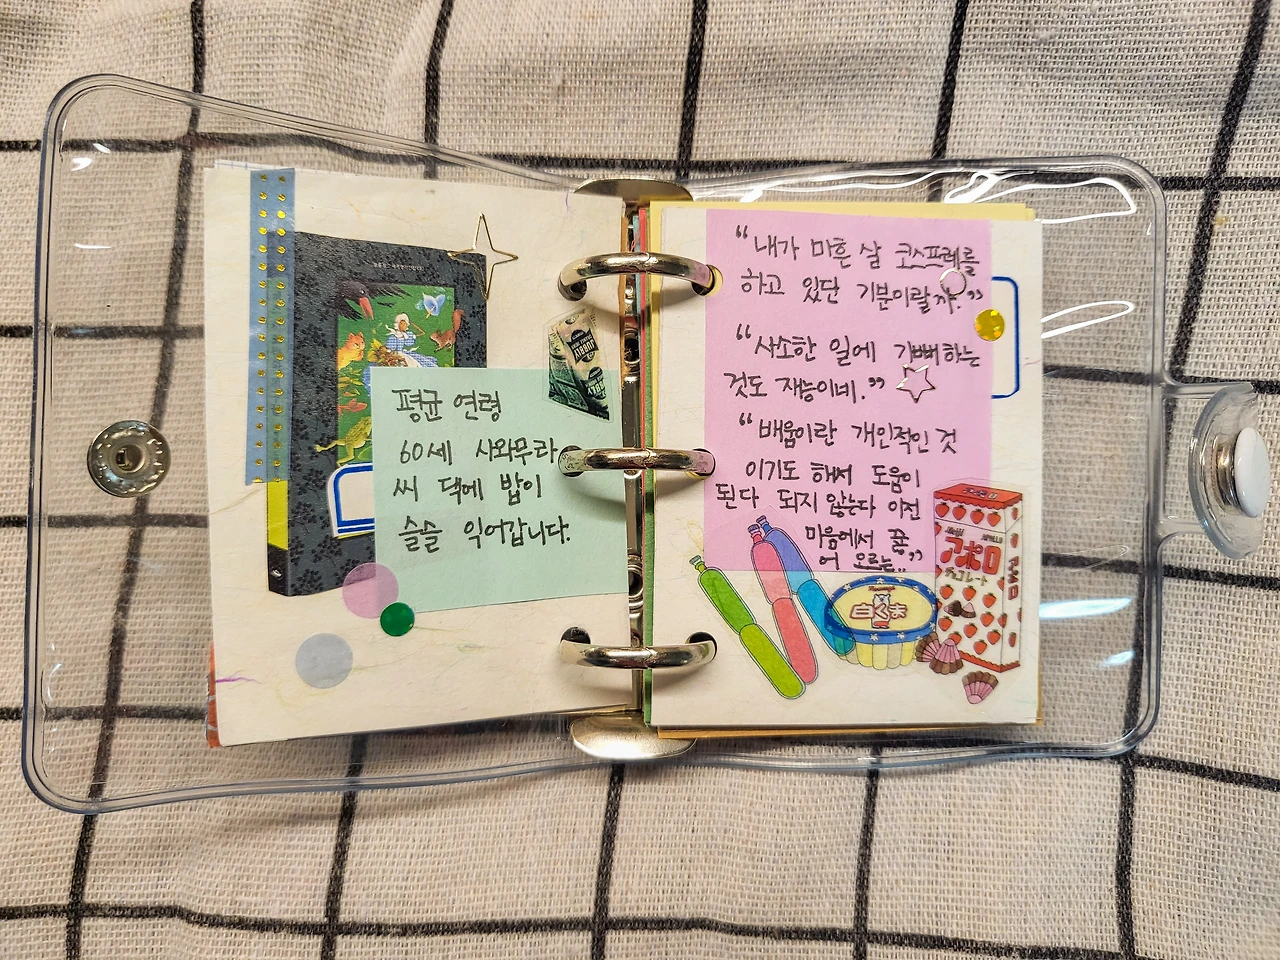 평균 연령
60세 사와무라
씨 댁에 밥이
슬슬 익어갑니다.
JUBBLY
"내가 마흔 살 코스프레를
하고 있단 기분이랄까."
"사소한 일에 기뻐하는
것도 재능이네."
"배움이란 개인적인 것
이기도 해서 도움이
된다 되지 않는다 이전
마음에서 끓
어 오르는.."
アポロ
Meiji
アポロ
チョコレート
白くま